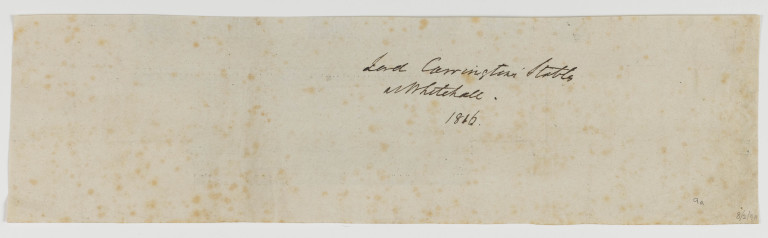 Lord Carrington's Stables
at Whitehall.
1816.